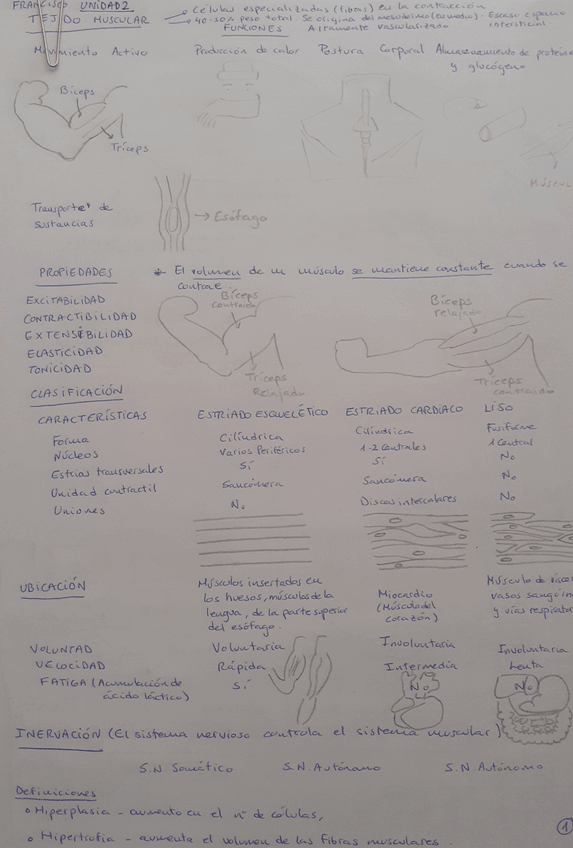 FRANCISCO UNIDAD 2
TEJIDO MUSCULAR
Células especializadas (fibras) en la contracción
40-50% peso total. Se origina del mesodermo (asomedio) - Escaso espacio intersticial
FUNCIONES Altamente vascularizado
Movimiento Activo Producción de calor Postura Corporal Almacenamiento de proteína
y glucógeno
Bíceps
Tríceps
Múscul
Transporte de
Sustancias
Esófago
PROPIEDADES
* El volumen de un músculo se mantiene constante cuando se
contrae
EXCITABILIDAD
CONTRACTIBILIDAD
EXTENSIBILIDAD
ELASTICIDAD
TONICIDAD
Bíceps
contraido
Tríceps
Relajado
Bíceps
relajado
Tríceps
contraído
CLASIFICACIÓN
CARACTERÍSTICAS ESTRIADO ESQUELÉTICO ESTRIADO CARDÍACO LISO
Forma Cilíndrica Cilíndrica Fusiforme
Núcleos Varios Periféricos 1-2 Centrales 1 Central
Estrías transversales Sí Sí No
Unidad contractil Saucómera Saucómera No
Uniones No Discos intercalares No
UBICACIÓN
Músculos insertados en
los huesos, músculos de la
lengua, de la parte superior
del esófago.
Miocardio
(Músculo del
corazón)
Músculo de viscer
vasos sanguin
y vías respirato
VOLUNTAD Voluntaria Involuntaria Involuntaria
VELOCIDAD Rápida Intermedia Lenta
FATIGA (Acumulación de Sí No No
ácido láctico)
INERVACIÓN (El sistema nervioso controla el sistema muscular)
S.N. Somático S.N. Autónomo S.N. Autónomo
Definiciones
Hiperplasia - aumento en el nº de células,
Hipertrofia - aumenta el volumen de las fibras musculares.
1